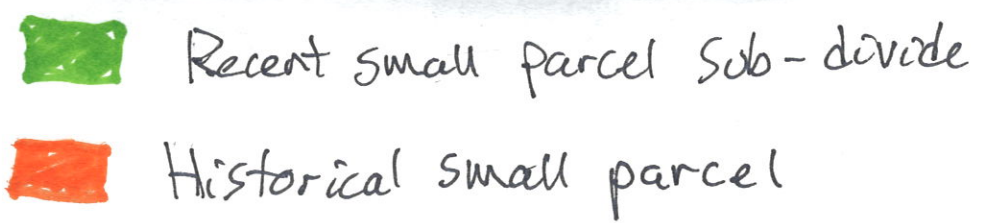 Recent small parcel sub-divide
Historical small parcel